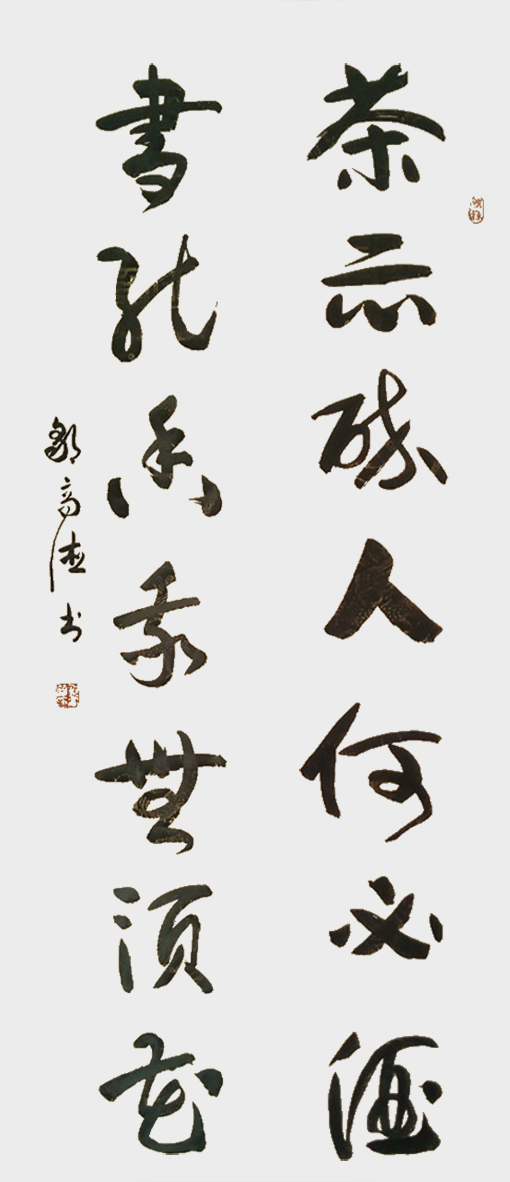 茶亦醉人何必酒
書能香我無須花
鄒高德书